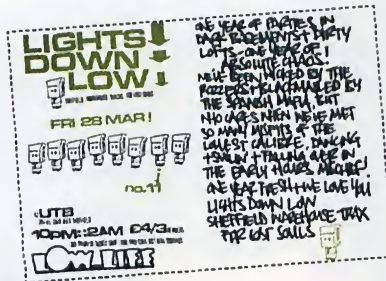 LIGHTS
DOWN
LOW
FRI 28 MAR!
no.11
UTB
10PM::2AM £4/3
LOW LIFE
ONE YEAR OF PARTIES IN
DARK BASEMENTS + DIRTY
LOFTS - ONE YEAR OF
ABSOLUTE CHAOS!
WE'VE BEEN NICKED BY THE
ROZZERS + BLACKMAILED BY
THE SPANISH MAFIA, BUT
WHO CARES WHEN WE'VE MET
SO MANY MISFITS OF THE
LOWEST CALIBRE, DANCING
+ FALLING OVER IN
THE EARLY HOURS
ONE YEAR FRESH + WE LOVE YOU
LIGHTS DOWN LOW
SHEFFIELD WAREHOUSE TRAX
FOR LOST SOULS